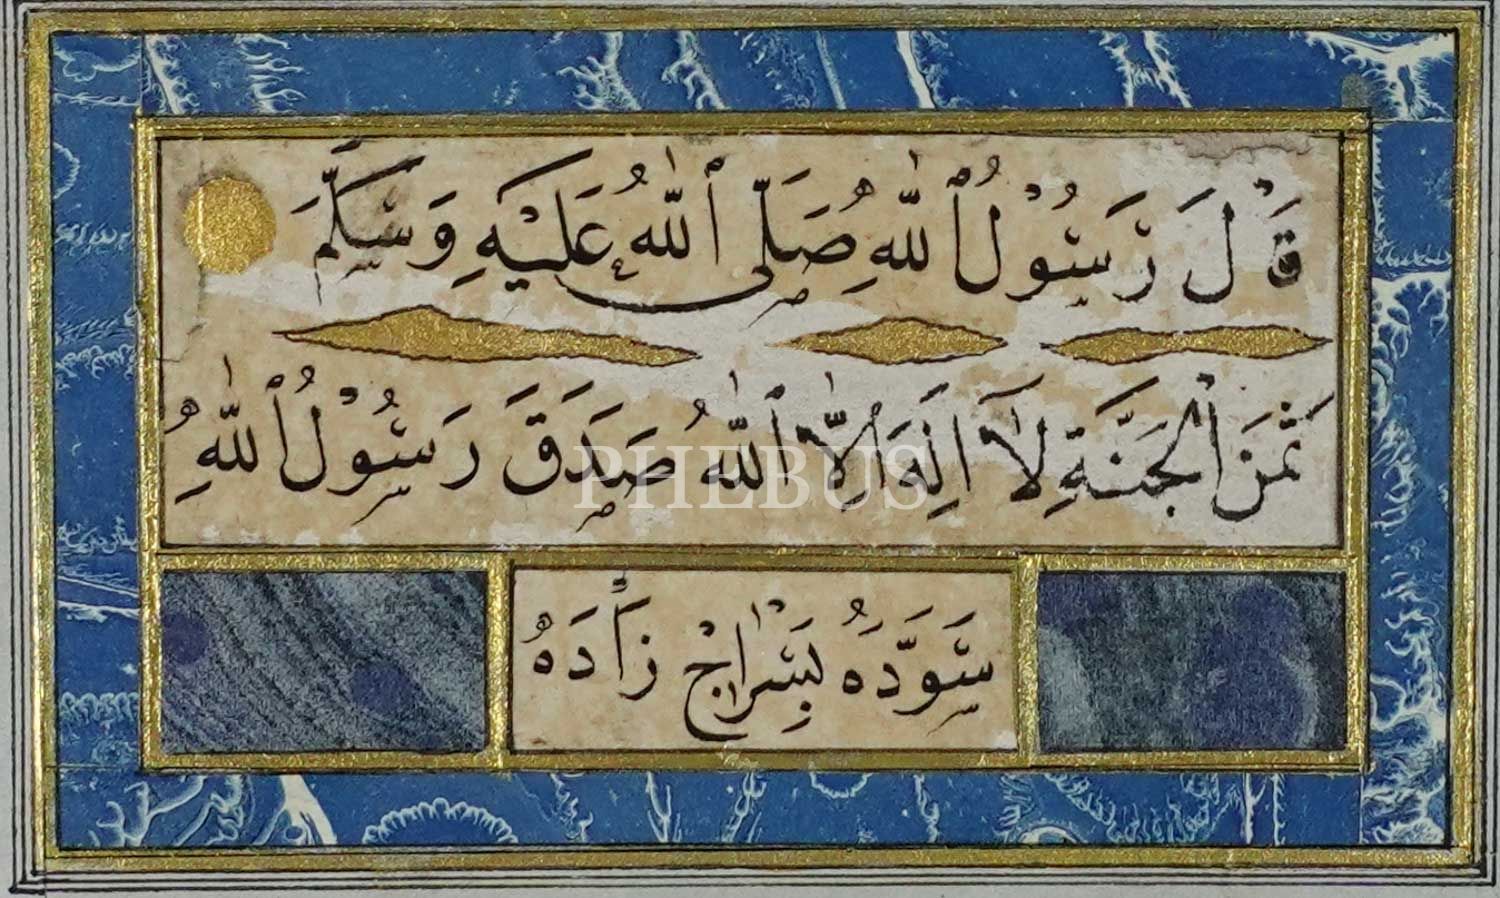 قَلَ رَسُوْلُ ٱللّٰهِ صَلَّى ٱللّٰهُ عَلَيْهِ وَسَلَّمَ
ثَمَنَ ٱلْجَنَّةِ لَا اِلٰهَ اِلَّا ٱللّٰهُ صَدَقَ رَسُوْلُ ٱللّٰهِ
PHEBUS
سَوَّدَهُ بَسِرٰاجْ زَادَهْ